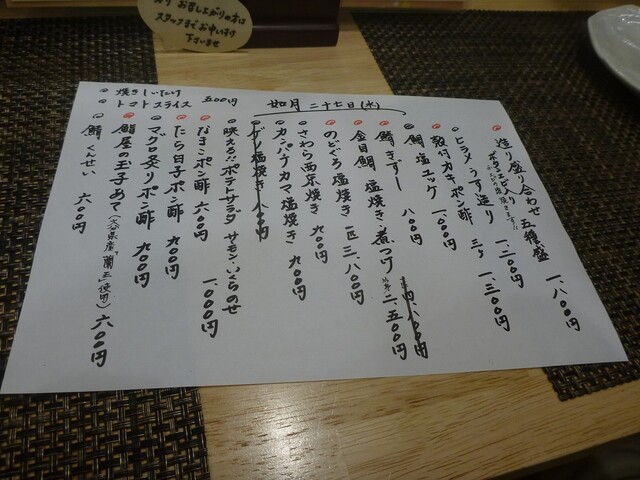 お召し上がりの方は
スタッフまでお申し付け
下さいませ
如月二十七日(木)
造り盛り合わせ 五種盛 一、八〇〇円
ボタンエビ入り 一、二〇〇円
ヒラメうす造り 一、三〇〇円
殻付カキポン酢 三ヶ 一、〇〇〇円
鯖塩ユッケ 八〇〇円
鯖きずし
金目鯛 塩焼き 煮つけ 半身 二、五〇〇円
のどぐろ塩焼き 一匹 三、八〇〇円
さわら西京焼き 九〇〇円
カンパチカマ塩焼き 九〇〇円
ブリ塩焼き 八〇〇円
映える!!ポテトサラダ サーモン・いくらのせ 一、〇〇〇円
なまこポン酢 六〇〇円
たら白子ポン酢 九〇〇円
マグロ炙りポン酢 九〇〇円
鯖屋の玉子あて(大分県産「蘭王」使用) 六〇〇円
鯖くんせい 六〇〇円
焼きしいたけ
トマトスライス 五〇〇円